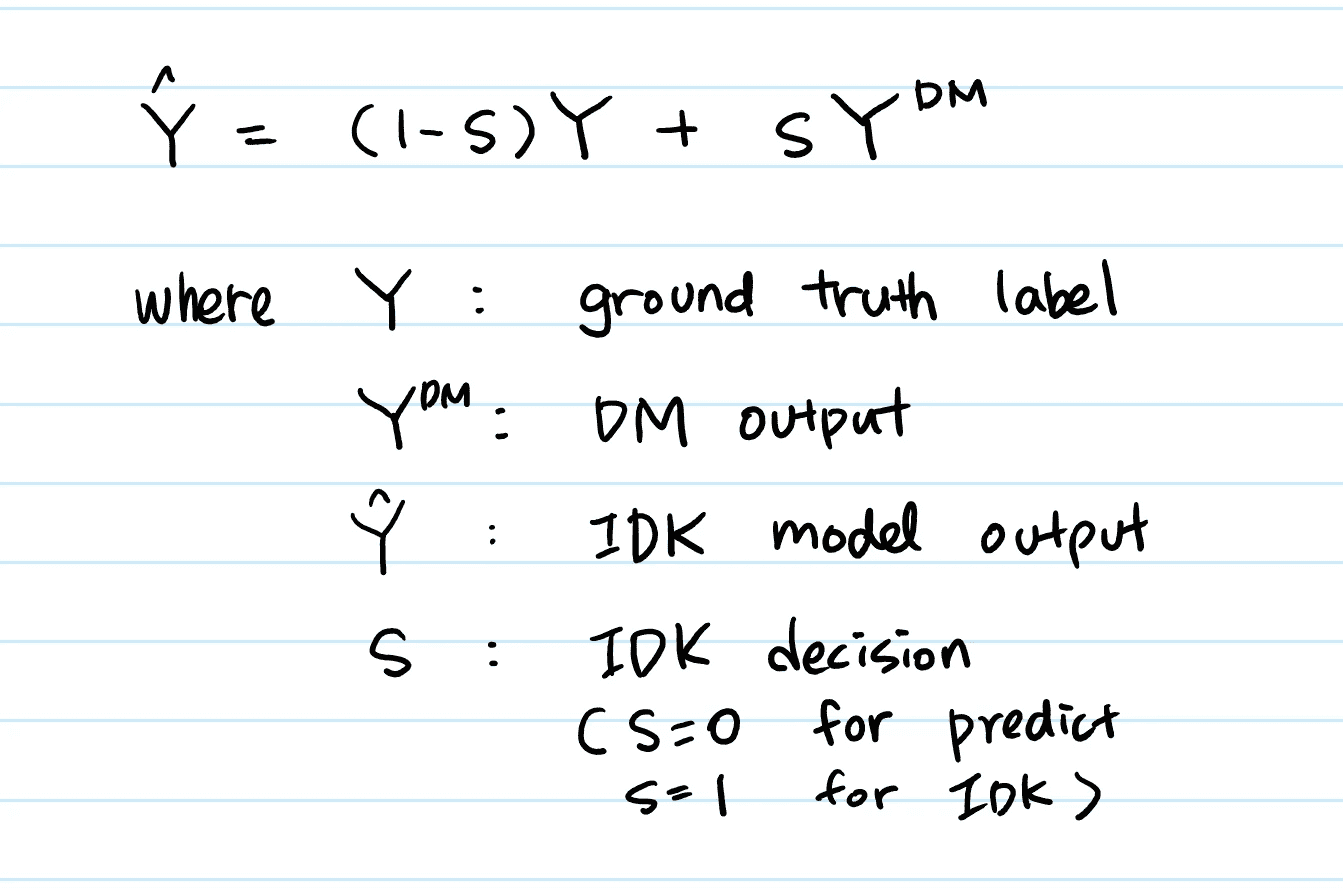 Ŷ = (1-S)Y + SY^DM
where Y : ground truth label
Y^DM : DM output
Ŷ : IDK model output
S : IDK decision
(S=0 for predict
S=1 for IDK)